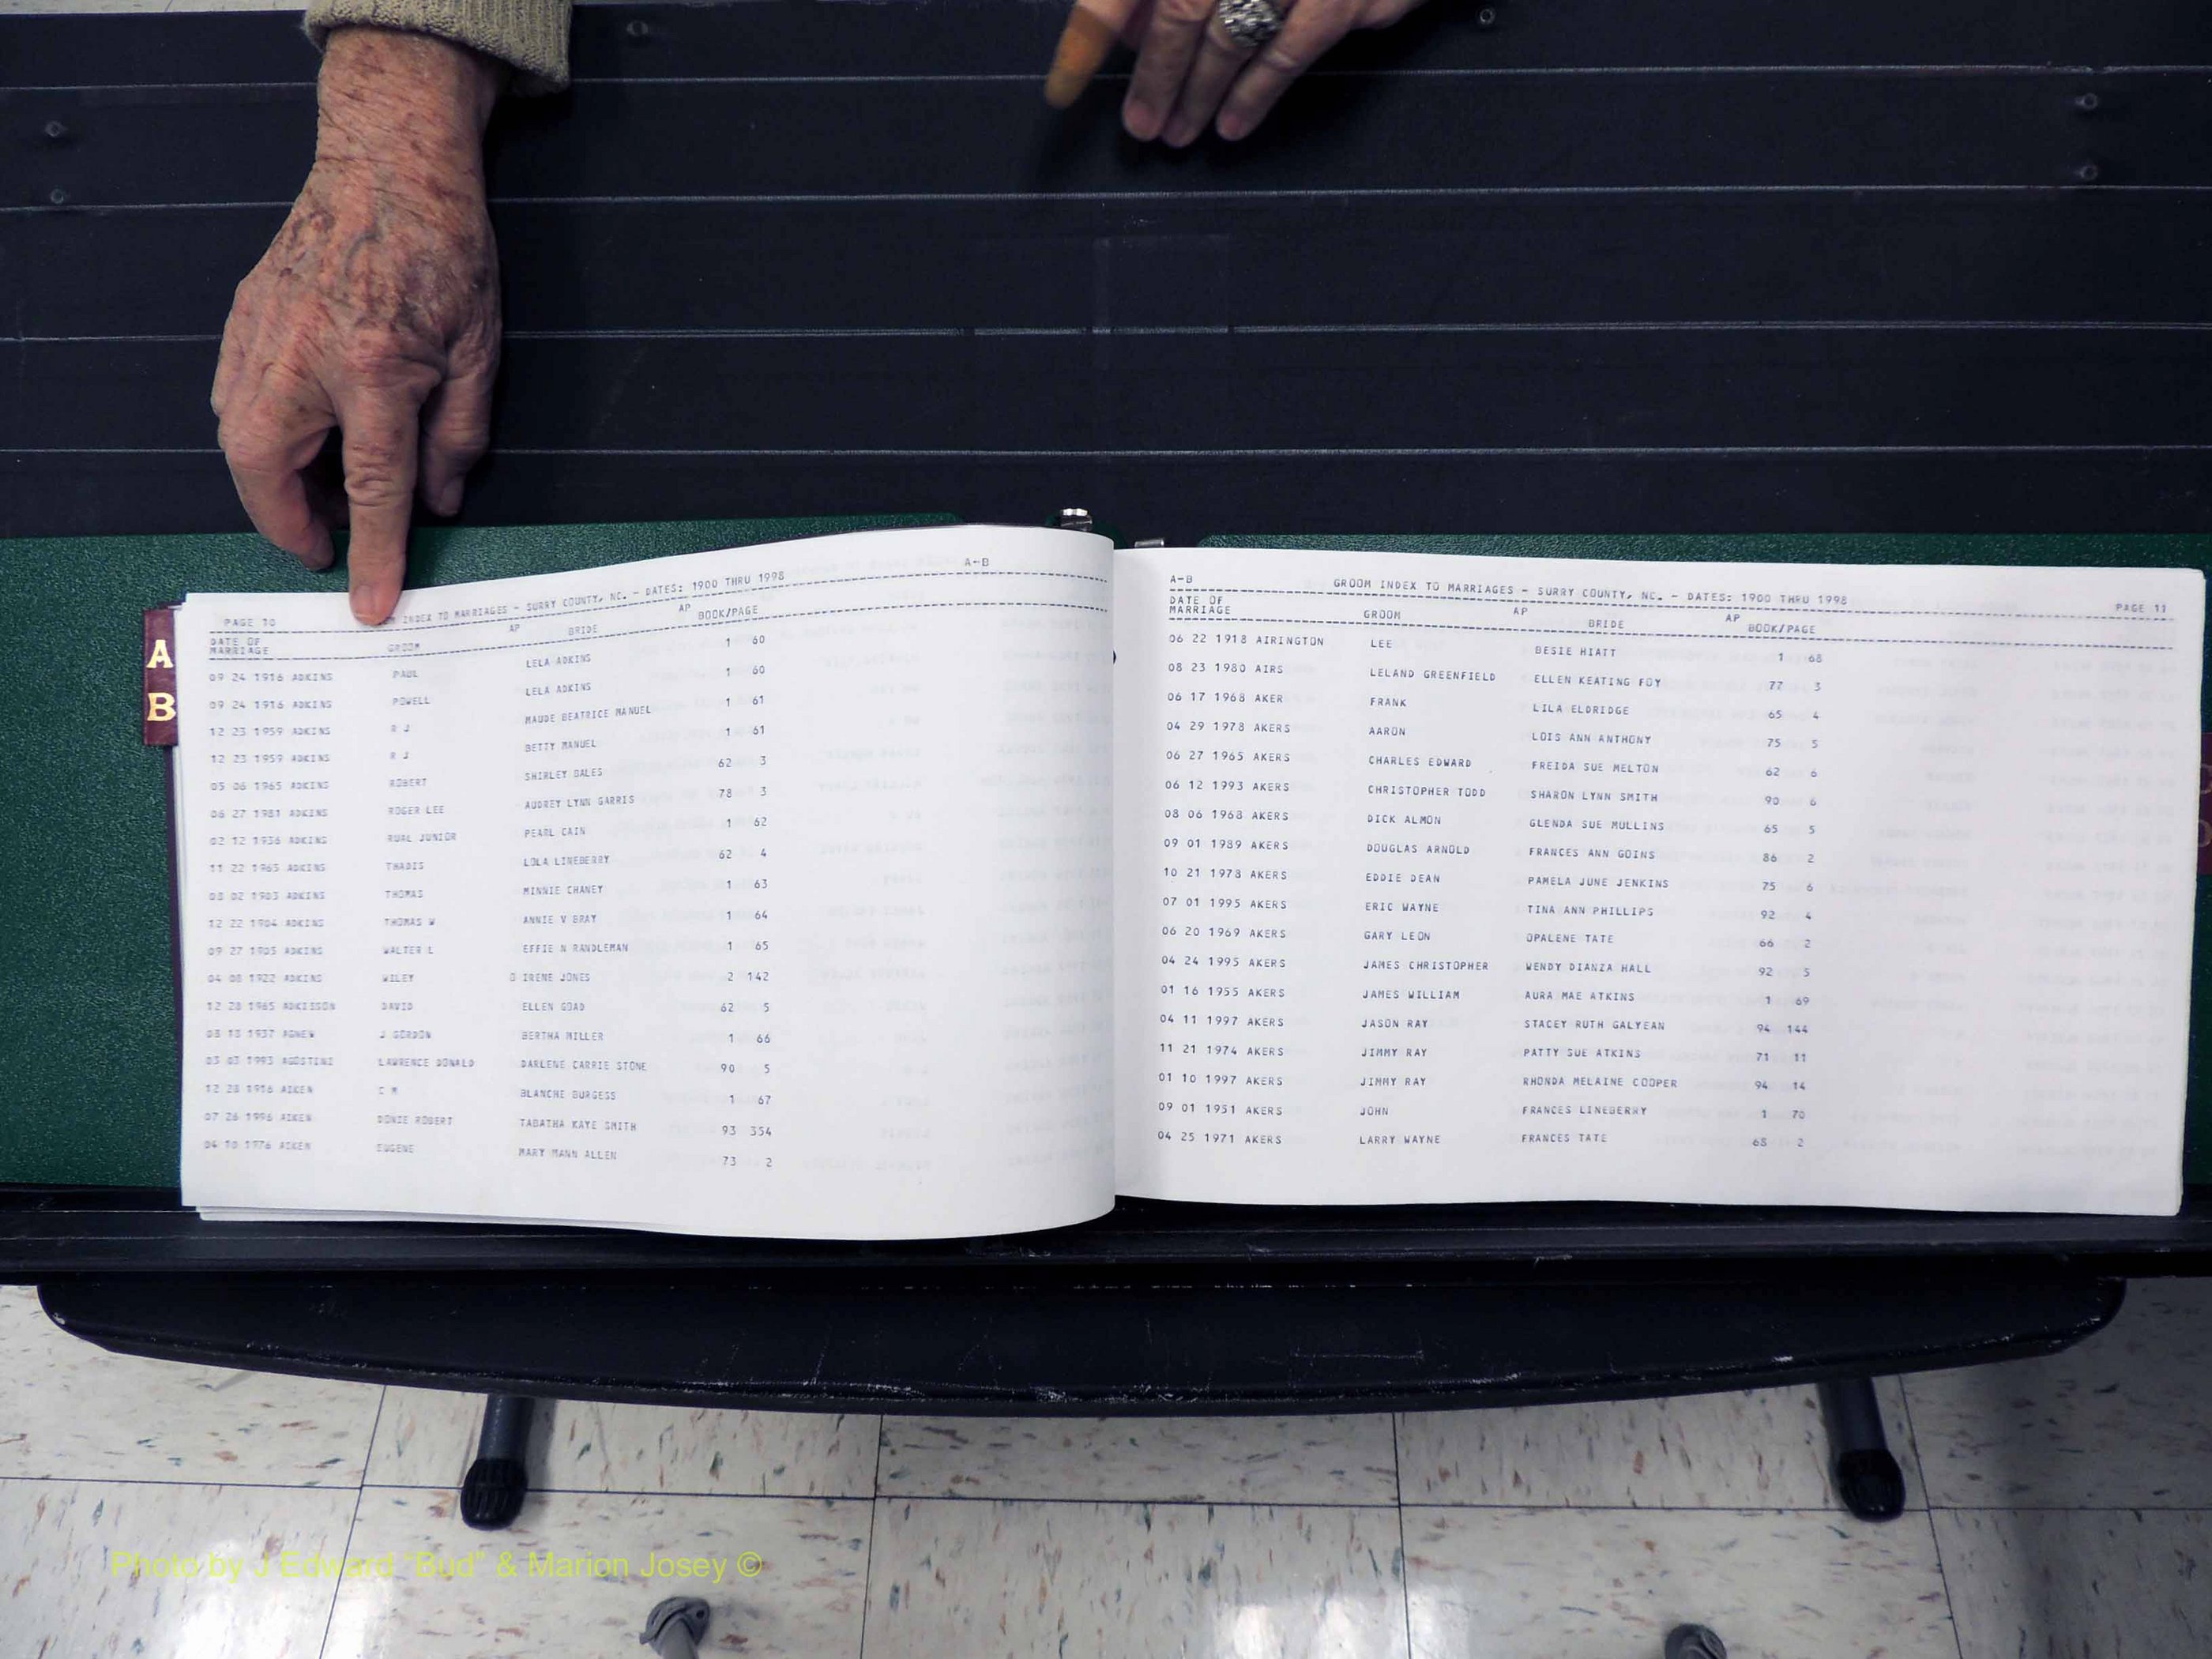 A
B
PAGE 10 INDEX TO MARRIAGES - SURRY COUNTY, NC. - DATES: 1900 THRU 1998 A-B
DATE OF AP AP
MARRIAGE GROOM BRIDE BOOK/PAGE
09 24 1916 ADKINS PAUL LELA ADKINS 1 60
09 24 1916 ADKINS POWELL LELA ADKINS 1 60
12 23 1959 ADKINS R J MAUDE BEATRICE MANUEL 1 61
12 23 1959 ADKINS R J BETTY MANUEL 1 61
05 06 1965 ADKINS ROBERT SHIRLEY GALES 62 3
06 27 1981 ADKINS ROGER LEE AUDREY LYNN GARRIS 78 3
02 12 1936 ADKINS RUAL JUNIOR PEARL CAIN 1 62
11 22 1965 ADKINS THADIS LOLA LINEBERRY 62 4
08 02 1903 ADKINS THOMAS MINNIE CHANEY 1 63
12 22 1904 ADKINS THOMAS W ANNIE V BRAY 1 64
09 27 1905 ADKINS WALTER L EFFIE N RANDLEMAN 1 65
04 08 1922 ADKINS WILEY D IRENE JONES 2 142
12 28 1965 ADKISSON DAVID ELLEN GOAD 62 5
08 13 1937 AGNEW J GORDON BERTHA MILLER 1 66
03 03 1993 AGOSTINI LAWRENCE DONALD DARLENE CARRIE STONE 90 5
12 28 1916 AIKEN C M BLANCHE BURGESS 1 67
07 26 1996 AIKEN DONIE ROBERT TABATHA KAYE SMITH 93 354
04 10 1976 AIKEN EUGENE MARY MANN ALLEN 73 2
A-B GROOM INDEX TO MARRIAGES - SURRY COUNTY, NC. - DATES: 1900 THRU 1998 PAGE 11
DATE OF AP AP
MARRIAGE GROOM BRIDE BOOK/PAGE
06 22 1918 AIRINGTON LEE BESIE HIATT 1 68
08 23 1980 AIRS LELAND GREENFIELD ELLEN KEATING FOY 77 3
06 17 1968 AKER FRANK LILA ELDRIDGE 65 4
04 29 1978 AKERS AARON LOIS ANN ANTHONY 75 5
06 27 1965 AKERS CHARLES EDWARD FREIDA SUE MELTON 62 6
06 12 1993 AKERS CHRISTOPHER TODD SHARON LYNN SMITH 90 6
08 06 1968 AKERS DICK ALMON GLENDA SUE MULLINS 65 5
09 01 1989 AKERS DOUGLAS ARNOLD FRANCES ANN GOINS 86 2
10 21 1978 AKERS EDDIE DEAN PAMELA JUNE JENKINS 75 6
07 01 1995 AKERS ERIC WAYNE TINA ANN PHILLIPS 92 4
06 20 1969 AKERS GARY LEON OPALENE TATE 66 2
04 24 1995 AKERS JAMES CHRISTOPHER WENDY DIANZA HALL 92 5
01 16 1955 AKERS JAMES WILLIAM AURA MAE ATKINS 1 69
04 11 1997 AKERS JASON RAY STACEY RUTH GALYEAN 94 144
11 21 1974 AKERS JIMMY RAY PATTY SUE ATKINS 71 11
01 10 1997 AKERS JIMMY RAY RHONDA MELAINE COOPER 94 14
09 01 1951 AKERS JOHN FRANCES LINEBERRY 1 70
04 25 1971 AKERS LARRY WAYNE FRANCES TATE 68 2
Photo by J Edward "Bud" & Marion Josey ©